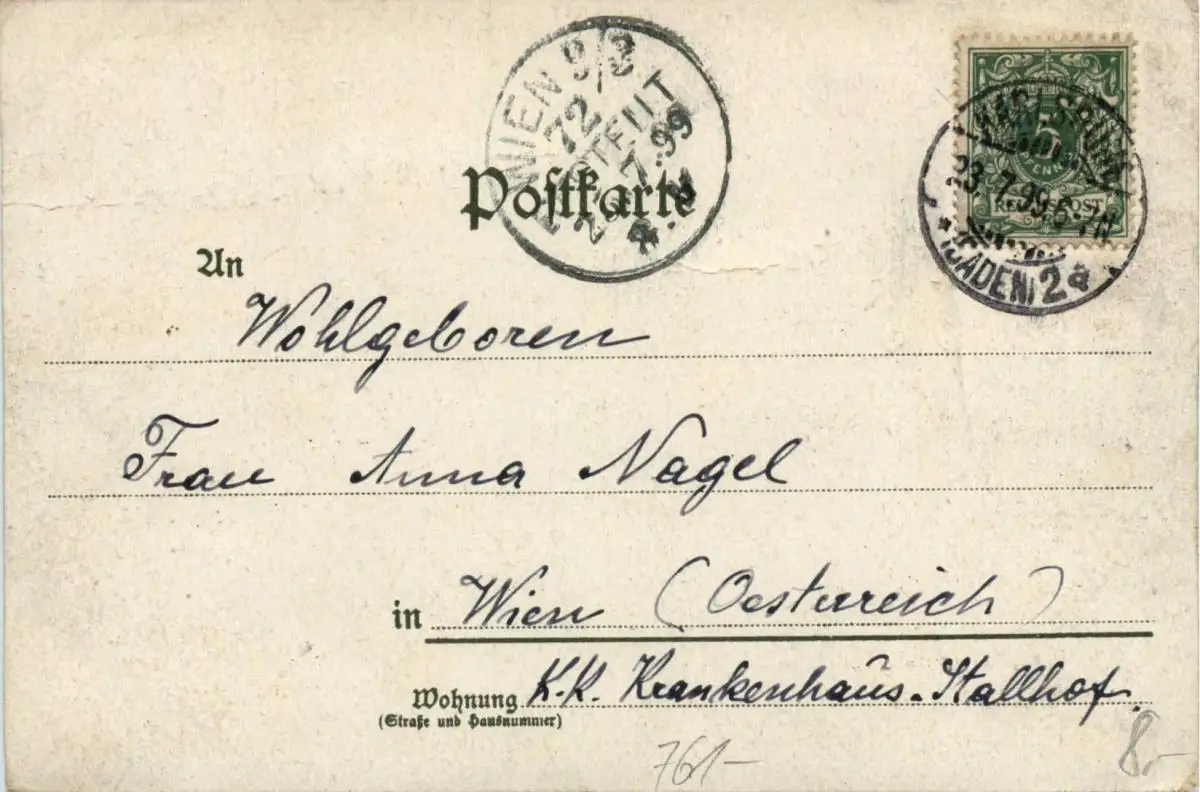 WIEN 9/3
72
BESTELLT
7.99
KARLSRUHE
23.7.99.6-7N
* (BADEN) 2a *
5
PFENNIG
REICHSPOST
Postkarte
An
Wohlgeboren
Frau Anna Nagel
in Wien (Oesterreich)
Wohnung K. K. Krankenhaus-Stallhof.
(Straße und Hausnummer)
761–
8.–